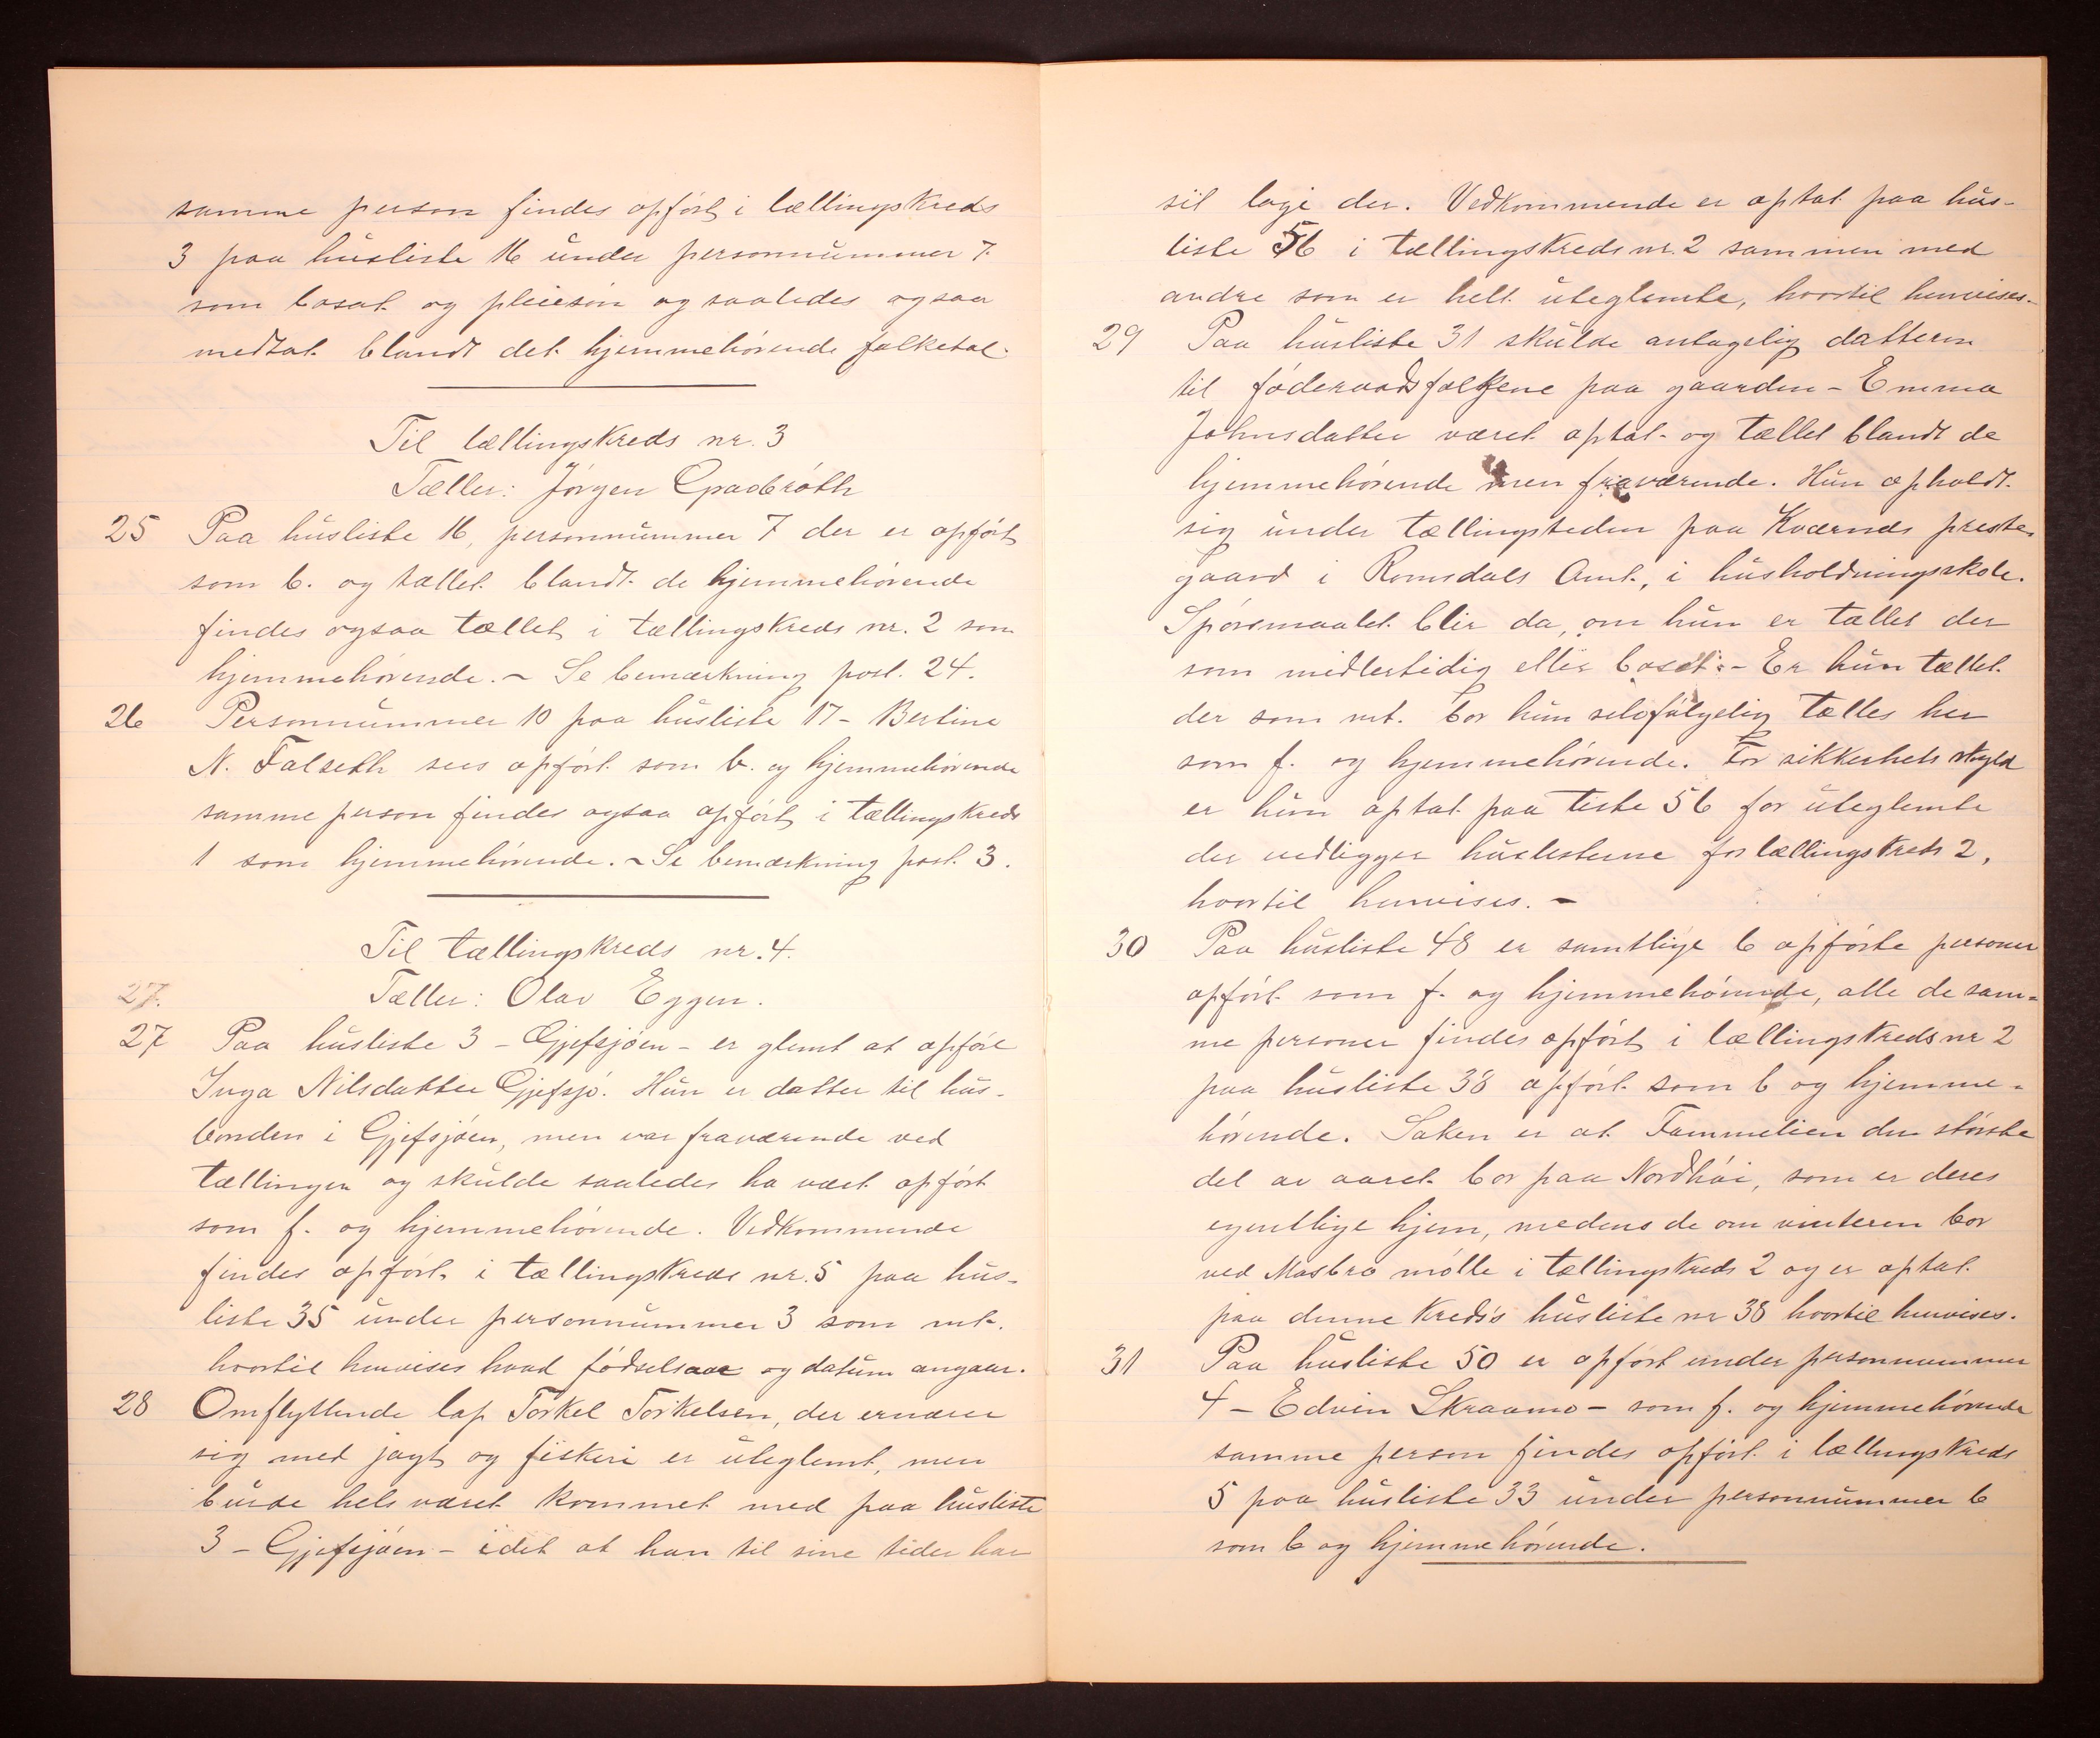 samme person findes opført i tællingskreds
3 paa husliste 16 under personnummer 7.
som bosat og pleiesøn og saaledes ogsaa
medtat blandt det hjemmehørende folketal.
Til tællingskreds nr. 3
Tæller: Jørgen
25 Paa husliste 16, personnummer 7 der er opført
som b. og tællet blandt de hjemmehørende
findes ogsaa tællet i tællingskreds nr. 2 som
hjemmehørende. - Se bemærkning post. 24.
26 Personnummer 10 paa husliste 17 - Berline
N. Falseth sees opført som b. og hjemmehørende
samme person findes ogsaa opført i tællingskreds
1 som hjemmehørende. - Se bemærkning post. 3.
Til tællingskreds nr. 4.
27.
Tæller: Olav Eggen.
27 Paa husliste 3 - Gjefsjøen - er glemt at opføre
Inga Nilsdatter Gjefsjø. Hun er datter til hus-
bonden i Gjefsjøen, men var fraværende ved
tællingen og skulde saaledes ha vært opført
som f. og hjemmehørende. Vedkommende
findes opført i tællingskreds nr. 5 paa hus-
liste 35 under personnummer 3 som mt.
hvortil henvises hvad fødselsaar og datum angaar.
28 Omflyttende lap Torkel Torkelsen, der ernærer
sig med jagt og fiskeri er uteglemt, men
burde hels været kommet med paa husliste
3 - Gjefsjøen - idet at han til sine tider har
sit logi der. Vedkommende er optat paa hus-
liste 56 i tællingskreds nr. 2 sammen med
andre som er helt uteglemte, hvortil henvises.
29 Paa husliste 31 skulde antagelig datteren
til føderaadsfolkene paa gaarden - Emma
Johnsdatter været optat og tællet blandt de
hjemmehørende men fraværende. Hun opholdt
sig under tællingstiden paa Kværnes preste-
gaard i Romsdals Amt., i husholdningsskole.
Spørsmaalet blir da, om hun er tællet der
som midlertidig eller bosat: - Er hun tællet
der som mt. bør hun selvfølgelig tælles her
som f. og hjemmehørende. For sikkerhets skyld
er hun optat paa liste 56 for uteglemte
der vedligger huslisterne for tællingskreds 2,
hvortil henvises. -
30 Paa husliste 48 er samtlige 6 opførte personer
opført som f. og hjemmehørende, alle de sam-
me personer findes opført i tællingskreds nr 2
paa husliste 38 opført som b og hjemme-
hørende. Saken er at Fammelien den største
del av aaret bor paa Nordhøi, som er deres
egentlige hjem, medens de om vinteren bor
ved Mosbrø mølle i tællingskreds 2 og er optat
paa denne Kreds's husliste nr 38 hvortil henvises.
31 Paa husliste 50 er opført under personnummer
4 - Edvin Skraamo - som f. og hjemmehørende
samme person findes opført i tællingskreds
5 paa husliste 33 under personnummer 6
som b og hjemmehørende.